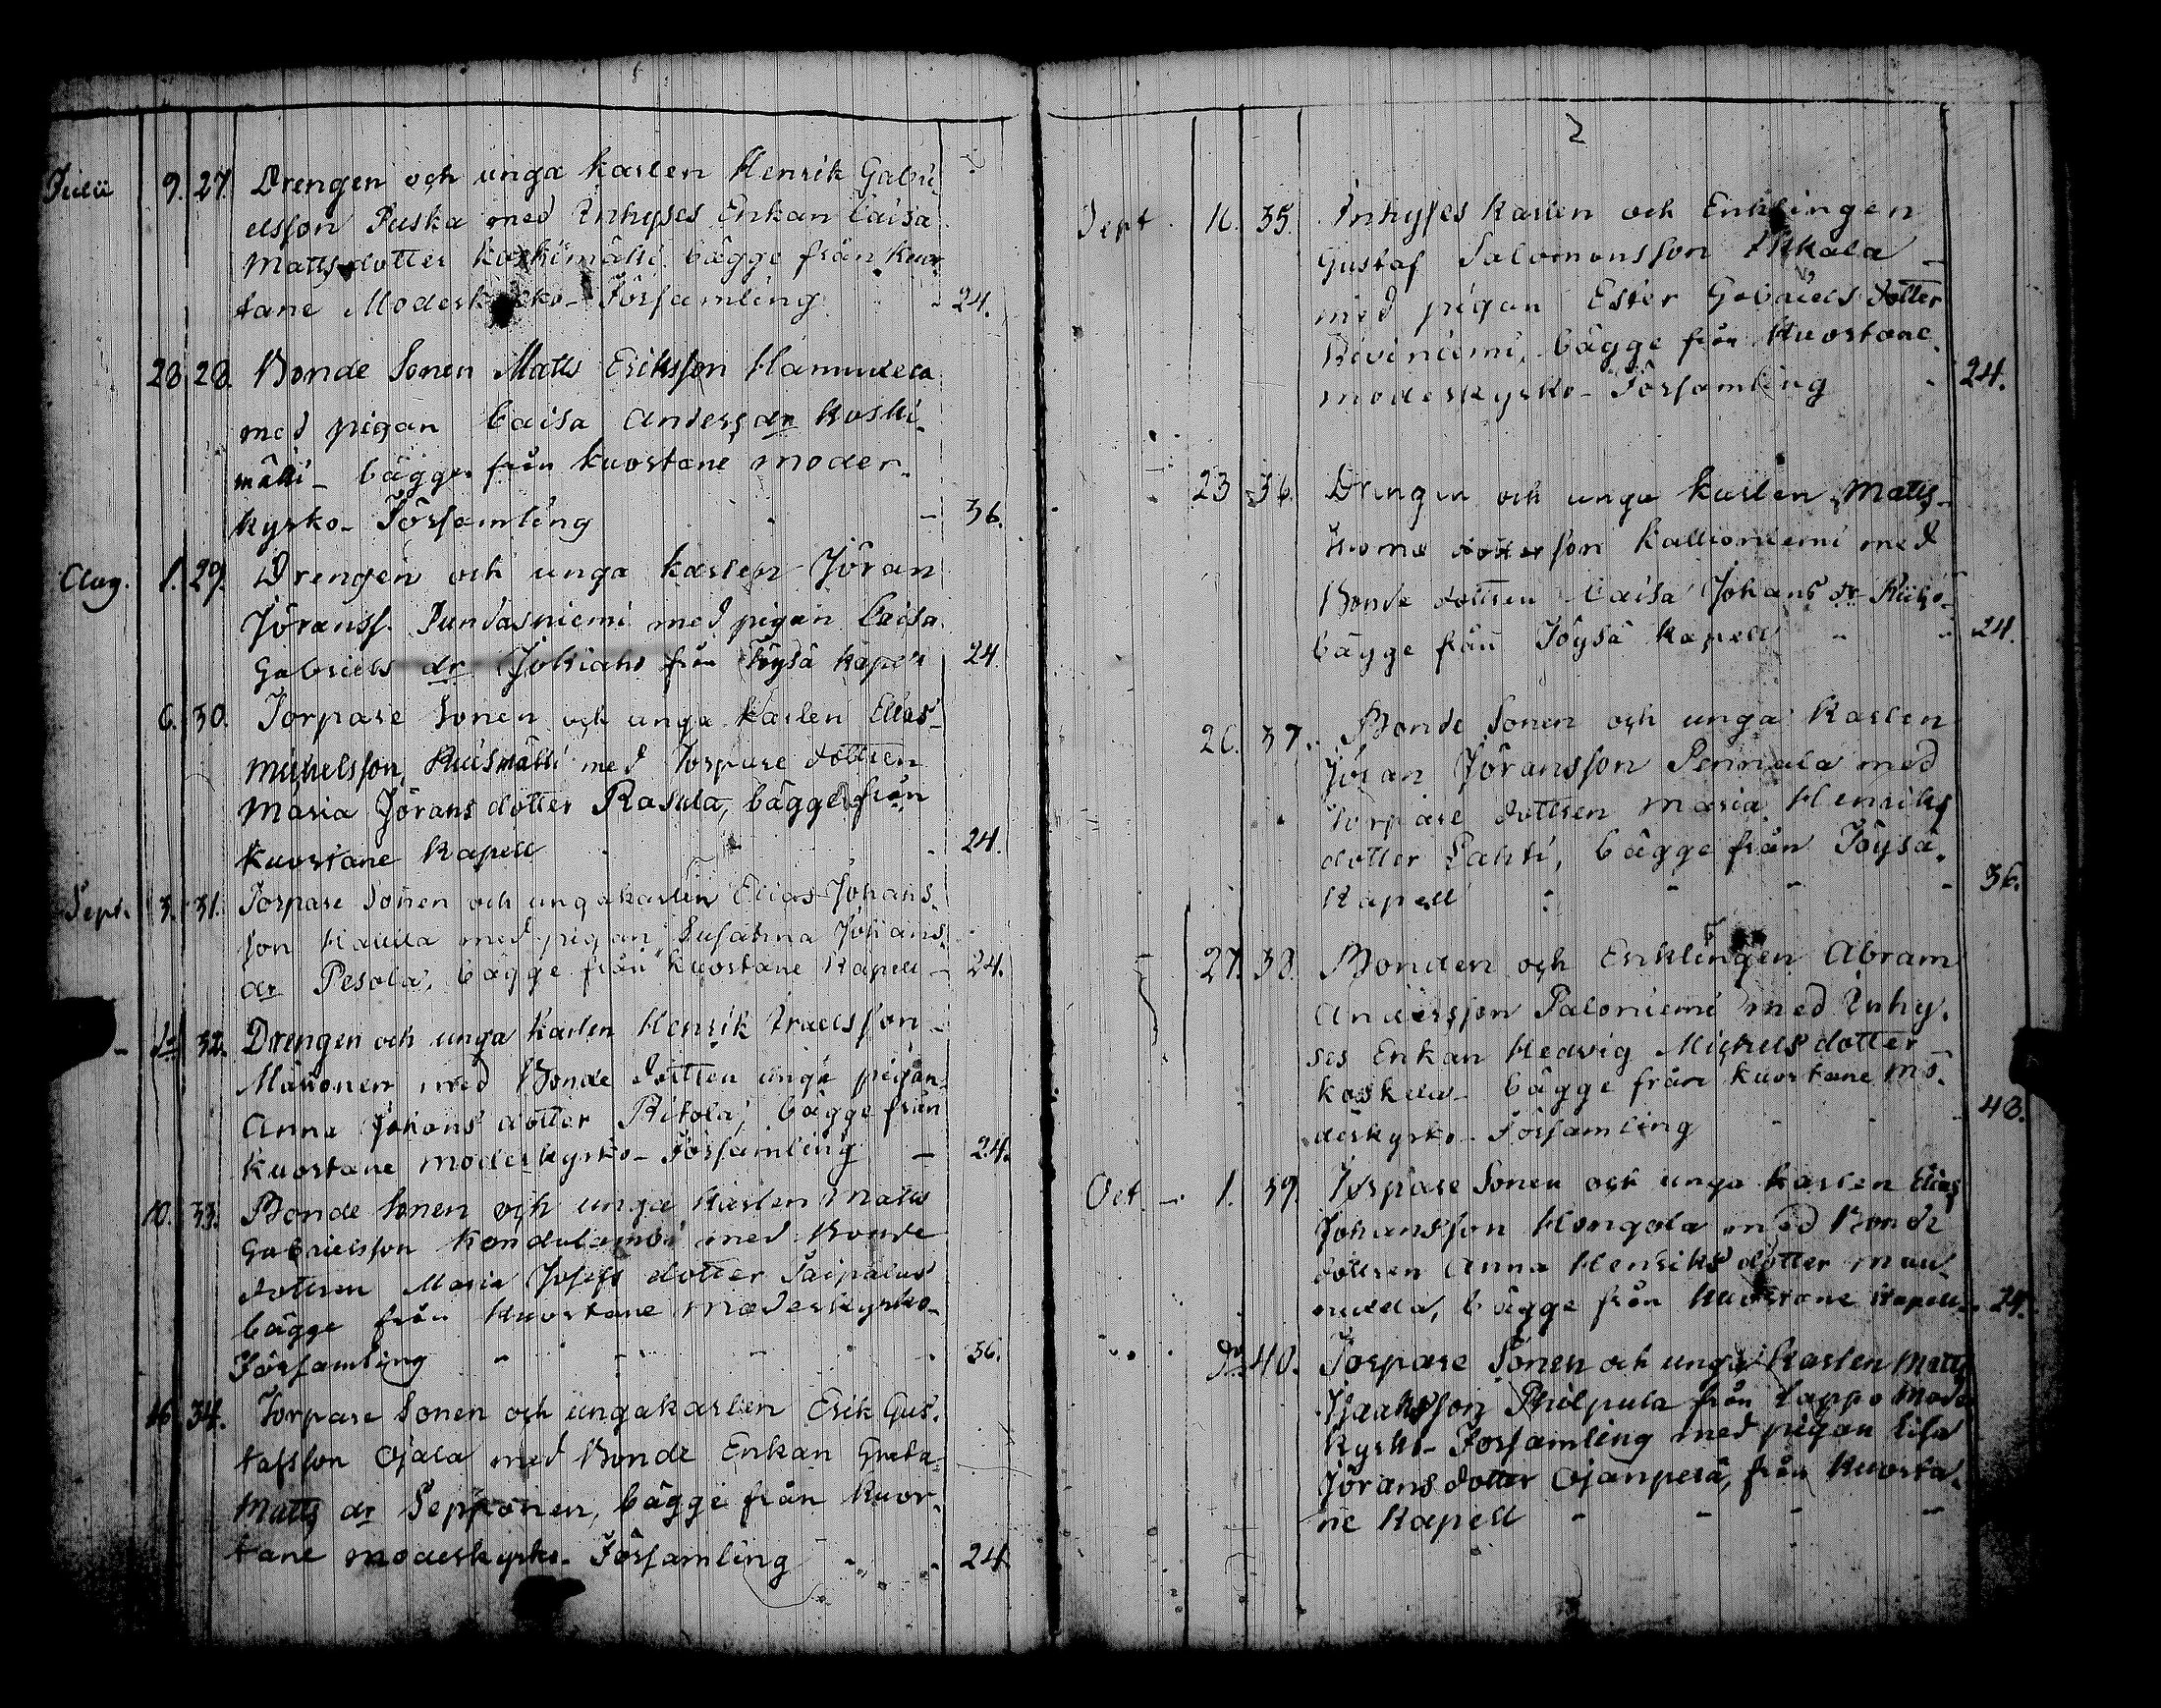 Julii 9. 27. Drengen och unga karlen Henrik Gabri-
elsson Puska med Inhyses Enkan Caisa
Mattsdotter Koskimäki bägge från Kuor-
tane Moderkyrko-Församling - 24.
28. 28. Bonde Sonen Matts Eriksson Hannuxela
med pigan Caisa Anders dr Koski-
mäki - bägge från Kuortane moder-
kyrko-Församling - 36.
Aug. 1. 29. Drengen och unga karlen Jöran
Jöranss. Sundasniemi med pigan Caisa
Gabriels dr Jokiaho från Töysä kapell 24.
6. 30. Torpare Sonen och unga karlen Elias
Michelsson, Ruismäki med Torpare dottren
Maria Jörans dotter Rasula, bägge från
Kuortane Kapell - 24.
Sept. 3. 31. Torpare Sonen och unga karlen Elias Johans-
son med pigan Susanna Johans
dr Pesola, bägge från Kuortane Kapell - 24.
- do 32. Drengen och unga Karlen Henrik Israelsson
med Bonde dottren unga pigan
Anna Johans dotter Ritola, bägge från
Kuortane moderkyrko-Församling - 24.
10. 33. Bonde Sonen och unga Karlen Matts
Gabrielsson med Bonde
dottren Maria Josefs dotter Saipalus
bägge från Kuortane Moderkyrko-
Församling - - - - 36.
16. 34. Torpare Sonen och unga karlen Erik Gus-
tafsson Ojala med Bonde Enkan Greta
Matts dr Sepponen, bägge från Kuor-
tane moderkyrko-Församling - - 24.
2
Sept. 16. 35. Inhyses Karlen och Enklingen
Gustaf Salomonsson Akkala
med pigan Ester Gabriels dotter
Riviniemi, bägge från Kuortane
moderkyrko-Församling - 24.
23 36. Drengen och unga karlen Matts
Kallioniemi med
Bonde dottren Caisa Johans dr
bägge från Töysä Kapell - - 24.
26. 37. Bonde Sonen och unga Karlen
Jöran Jöransson Pennala med
Torpare dottren Maria Henriks
dotter Lahti, bägge från Töysä
Kapell - - - - 36.
27. 38. Bonden och Enklingen Abram
Andersson Paloniemi med Inhy-
ses Enkan Hedvig Michels dotter
Koskela - bägge från Kuortane mo-
derkyrko-Församling - - - 48.
Oct. - 1. 39. Torpare Sonen och unga karlen Elias
Johansson Hongola med Bonde
dottren Anna Henriks dotter Mau-
nuxela, bägge från Kuortane Kapell - 24.
do 40. Torpare Sonen och unga Karlen Matts
Isaaksson Philpula från Lappo Moder
kyrko-Församling med pigan Lisa
Jörans dotter Ojanperä, från Kuorta-
ne Kapell - - - -